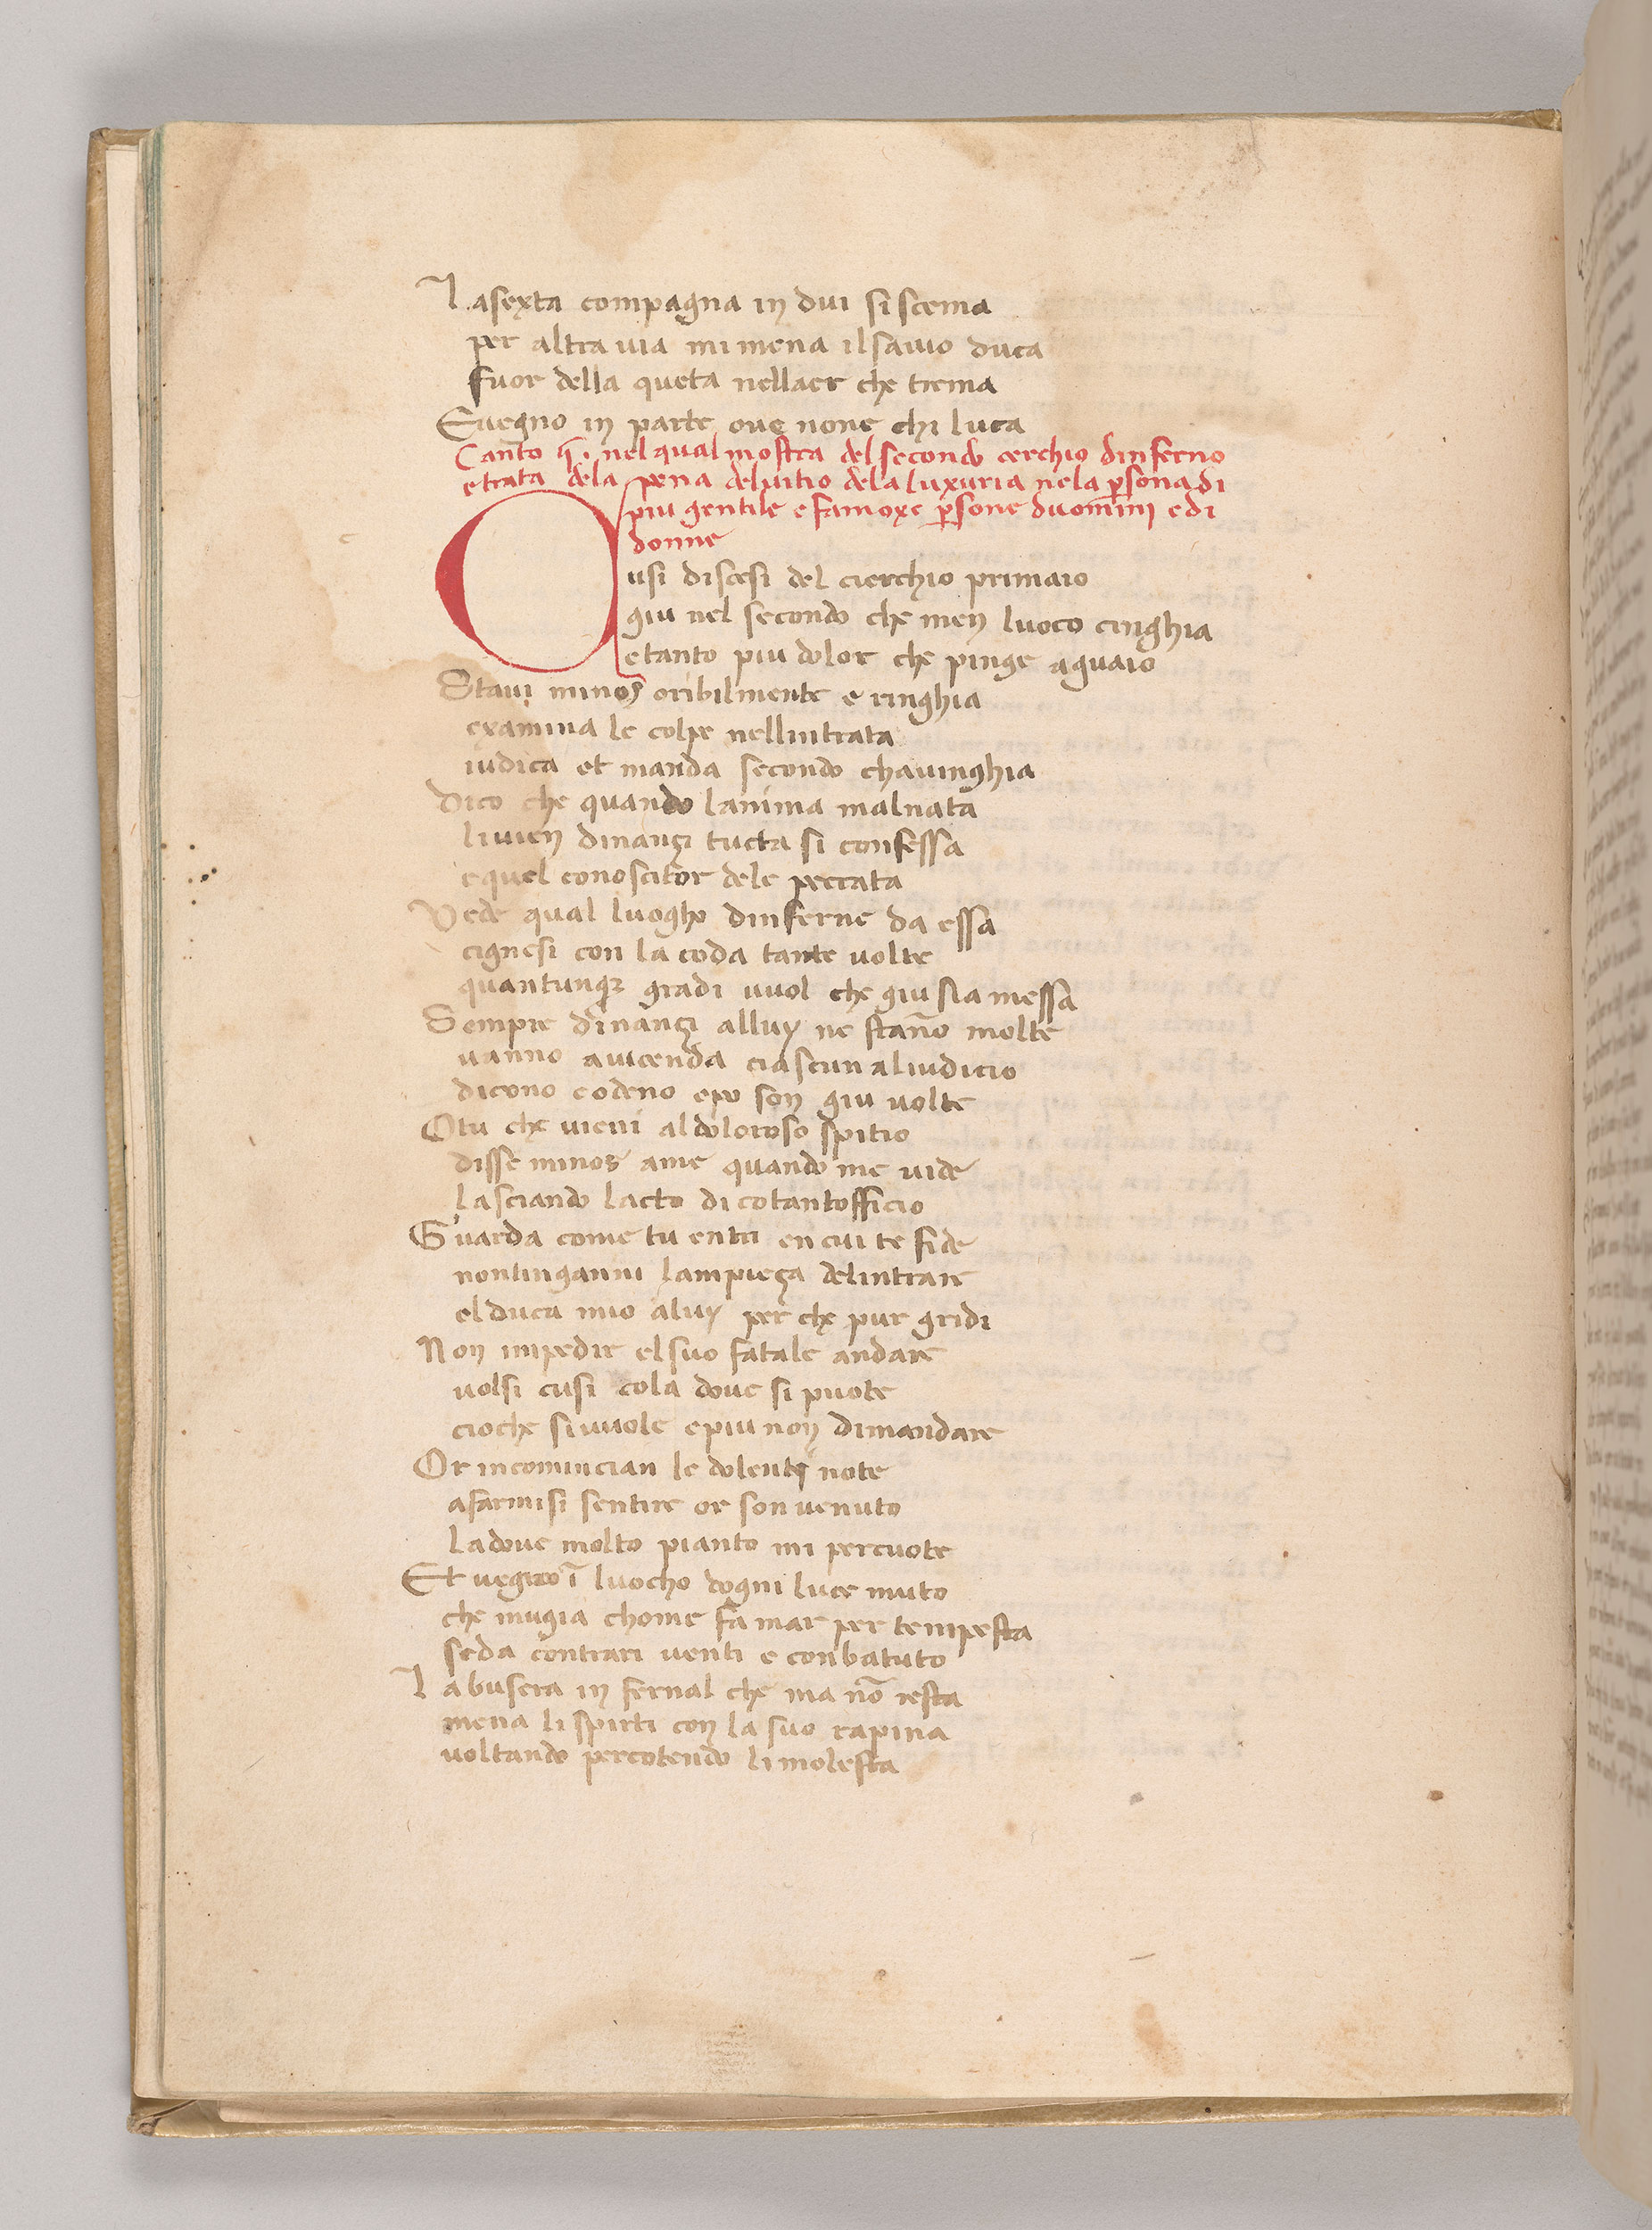 La sexta compagna in dui si scema
per altra uia mi mena il sauio duca
fuor della queta nellaer che trema
E uegno in parte oue none chi luca
Canto q̄. nel qual mostra del secondo cerchio dinferno
e trata dela pena deluitio dela luxuria nela p̄sona di
piu gentile e famoxe p̄sone duomini e di
donne
Qusi discesi del cierchio primaio
giu nel secondo che men luoco cinghia
e tanto piu dolor che pinge aguaio
Staui minos oribilmente e ringhia
examina le colpe nellintrata
iudica et manda secondo chauinghia
Dico che quando lanima malnata
li uien dinançi tucta si confessa
e quel conoscitor dele peccata
Vede qual luogho dinferne da essa
cignesi con la coda tante uolte
quantunqȝ gradi uuol che giu sia messa
Sempre dinançi alluy ne stan̄o molte
uanno auicenda ciascun al iudicio
dicono e odeno e poi son giu uolte
O tu che uieni al doloroso spitio
disse minos ame quando me uide
lasciando lacto di cotantofficio
Guarda come tu entri en cui te fide
non tinganni lampieça delintrare
el duca mio aluy per che pur gridi
Non impedir el suo fatale andare
uolsi cusi cola doue si puote
cio che si uuole e piu non dimandare
Or incomincian le dolenti note
a farmisi sentire or son uenuto
la doue molto pianto mi percuote
Et uegno ī luocho dogni luce muto
che mugia chome fa mar per tempesta
se da contrari uenti e conbatuto
La bufera in fernal che ma nō resta
mena li spirti con la suo rapina
uoltando percotendo li molesta